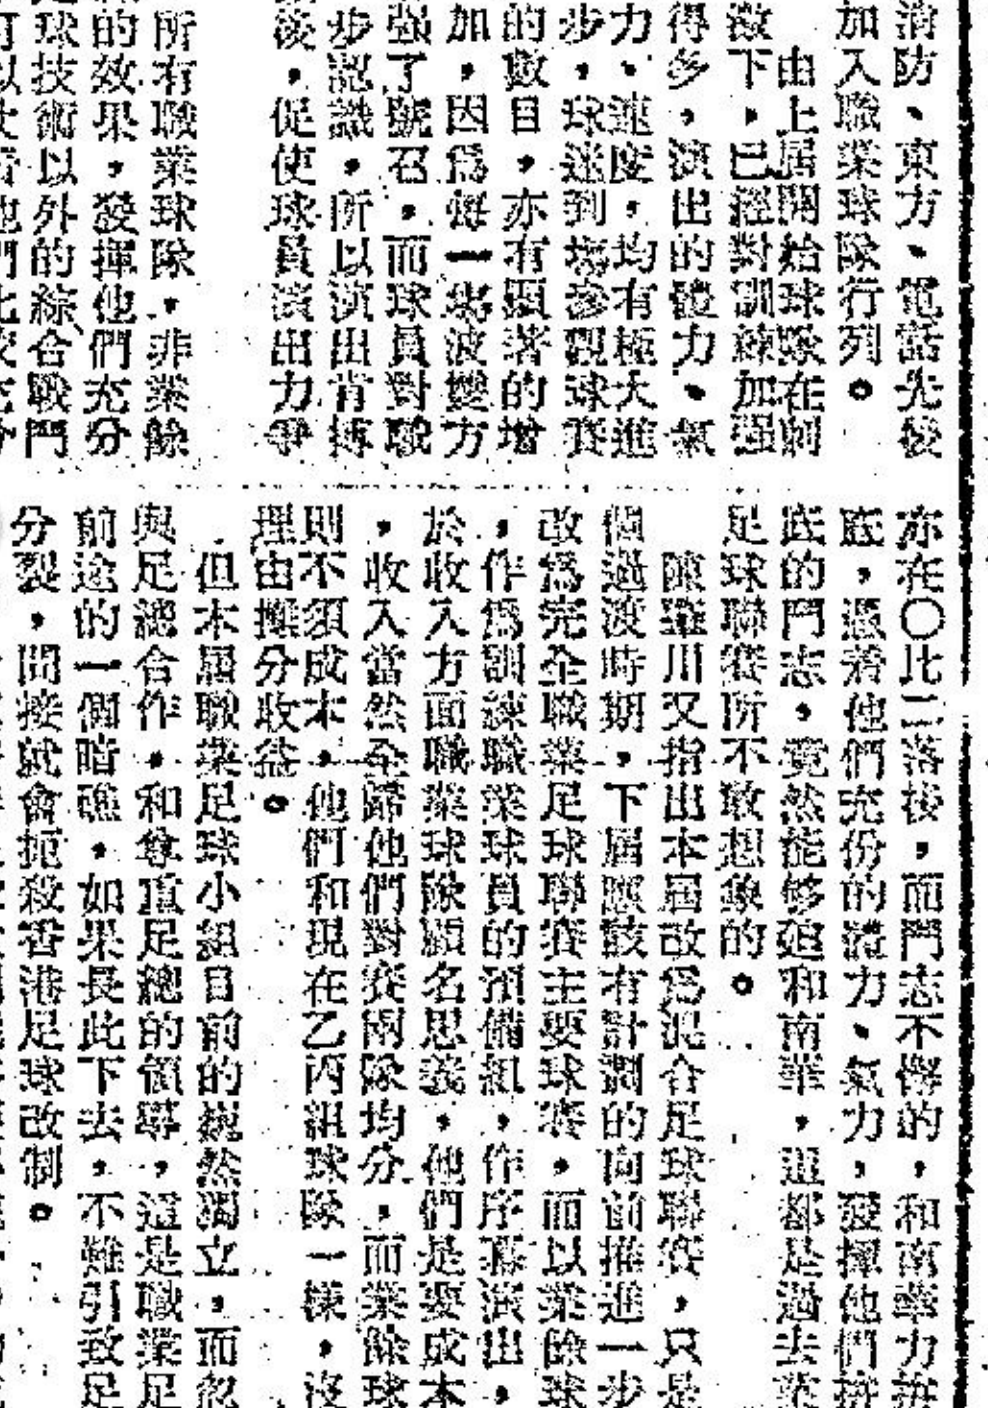 消防、東方、電話先後
加入職業球隊行列。
由上屆開始球隊在刺
激下，已經對訓練加强
得多，演出的體力、氣
力、速度，均有極大進
步，球迷到塲參觀球賽
的數目，亦有顯著的增
加，因爲每一東波變方
强了號召，而球員對職
步認識，所以演出肯搏
後，促使球員演出力爭
所有職業球隊，非業餘
的效果，發揮他們充分
球技術以外的綜合戰鬥
亦在〇比二落後，而鬥志不懈的，和南華力拚
底，憑着他們充份的體力、氣力，發揮他們拚
底的鬥志，竟然能够追和南華，這都是過去業
足球聯賽所不敢想象的。
川又指出本屆改爲混合足球聯賽，只是
個過渡時期，下屆應該有計劃的向前推進一步
改爲完全職業足球聯賽主要球賽，而以業餘球
，作爲訓練職業球員的預備組，作序幕演出，
於收入方面職業球隊顧名思義，他們是要成本
，收入當然全歸他們對賽兩隊均分，而業餘球
則不須成本，他們和現在乙丙組球隊一樣，沒
理由攤分收益。
但本屆職業足球小組目前的巍然獨立，而忽
與足總合作，和尊重足總的領導，這是職業足
前途的一個暗礁，如果長此下去，不難引致足
分裂，間接就會扼殺香港足球改制。